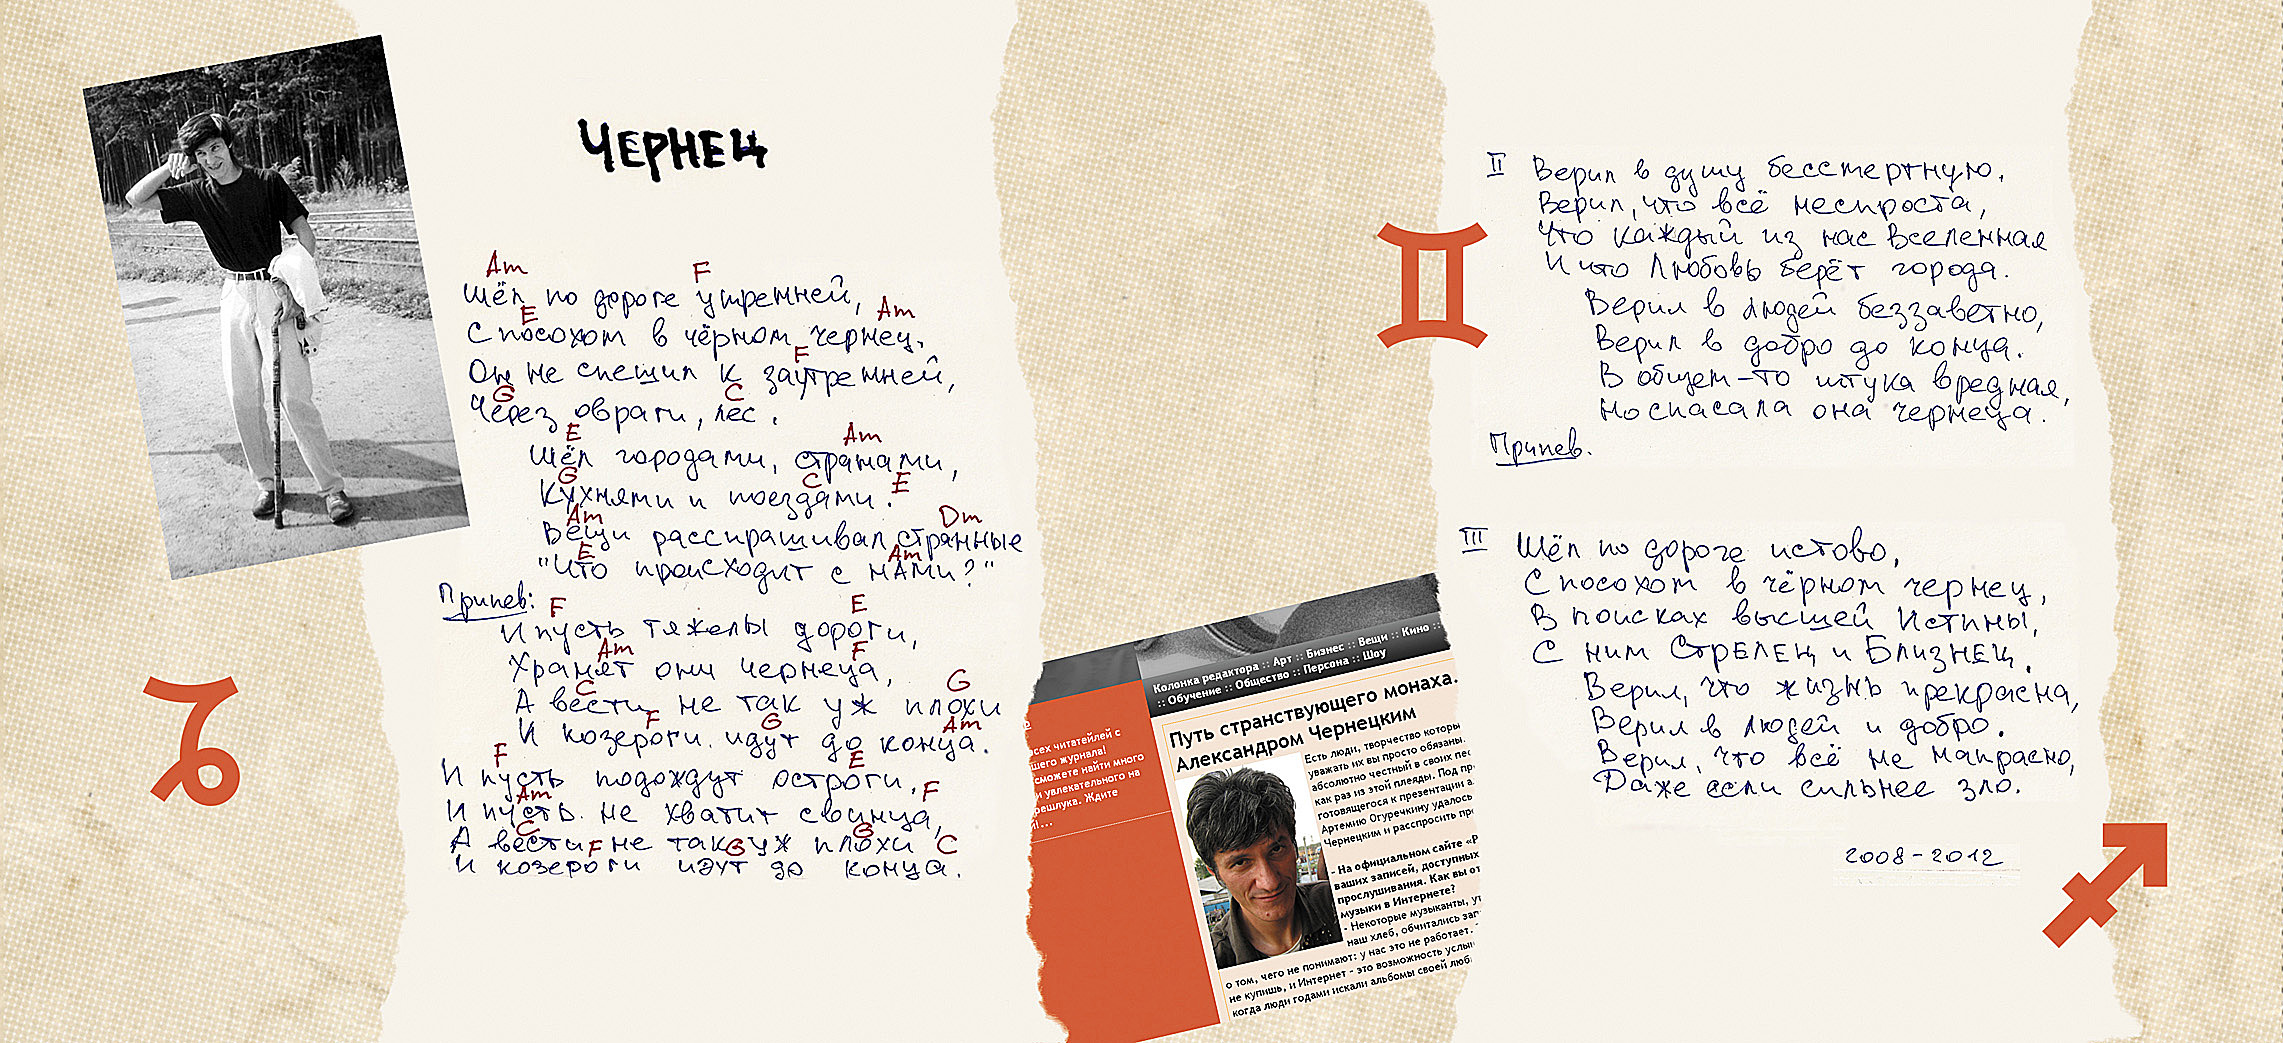 ЧЕРНЕЦ
Am F
Шёл по дороге утренней,
E Am
С посохом в чёрном чернец.
F
Он не спешил к заутренней,
G C
Через овраги, лес.
E Am
Шёл городами, странами,
G C E
Кухнями и поездами.
Am Dm
Вещи расспрашивал странные
E Am
"Что происходит с нАми?"
Припев:
F E
И пусть тяжелы дороги,
Am F
Хранят они чернеца,
C G
А вести не так уж плохи
F G Am
И козероги идут до конца.
F E
И пусть подождут остроги,
Am F
И пусть не хватит свинца,
C G
А вести не так уж плохи
F G C
И козероги идут до конца.
Колонка редактора :: Арт :: Бизнес :: Вещи :: Кино ::
:: Обучение :: Общество :: Персона :: Шоу
всех читателей с
шего журнала!
сможете найти много
и увлекательного на
Ждите
Путь странствующего монаха.
Александром Чернецким
Есть люди, творчество которы
уважать их вы просто обязаны.
абсолютно честный в своих пес
как раз из этой плеяды. Под пр
готовящегося к презентации а
Артемию Огуречкину удалось
Чернецким и расспросить пр
- На официальном сайте «Р
ваших записей, доступных
прослушивания. Как вы от
музыки в Интернете?
- Некоторые музыканты, ут
наш хлеб, обчитались заг
о том, чего не понимают: у нас это не работает.
не купишь, и Интернет - это возможность услы
когда люди годами искали альбомы своей люб
II Верил в душу бессмертную,
Верил, что всё неспроста,
Что каждый из нас Вселенная
И что Любовь берёт города.
Верил в людей беззаветно,
Верил в добро до конца.
В общем-то штука вредная,
Но спасала она чернеца.
Припев.
III Шёл по дороге истово,
С посохом в чёрном чернец,
В поисках высшей Истины,
С ним СТРЕЛЕЦ и БЛИЗНЕЦ.
Верил, что жизнь прекрасна,
Верил в людей и добро.
Верил, что всё не напрасно,
Даже если сильнее зло.
2008-2012